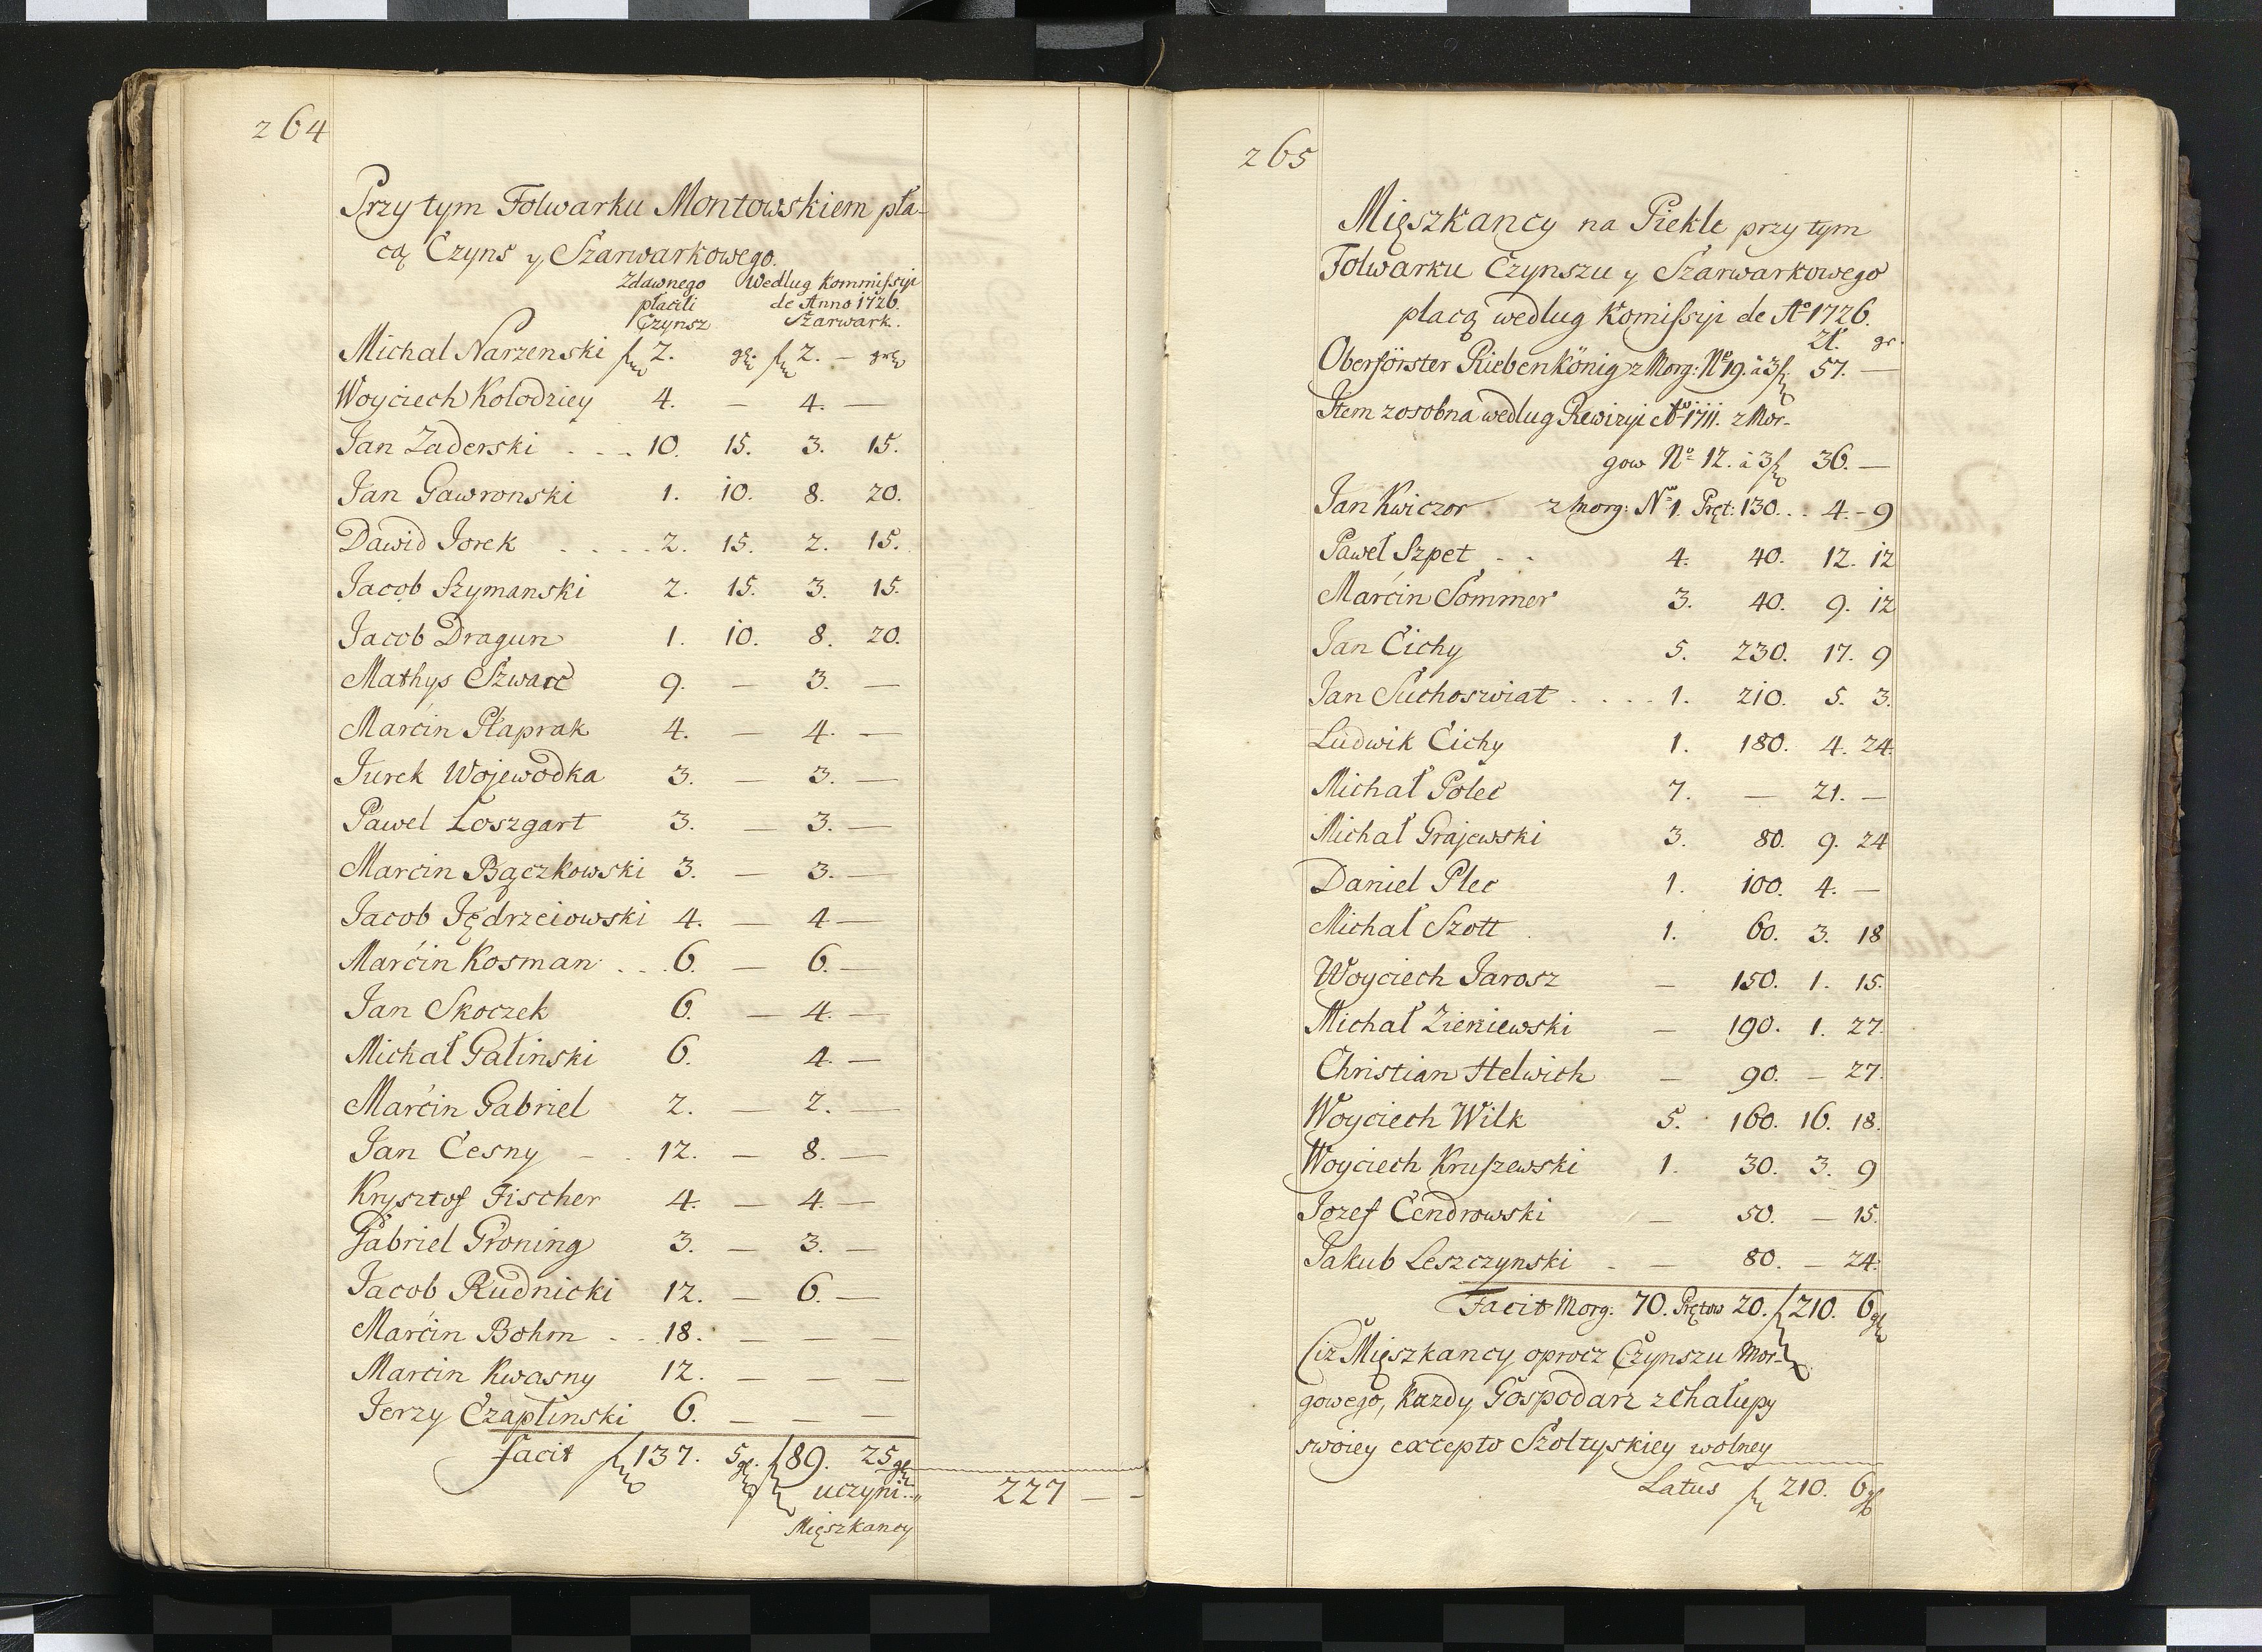 264
Przy tym Folwarku Montowskiem pła-
cą Czyns y Szarwarkowego.
Zdawnego Według Kommissyi
płacili de Anno 1726.
Czynsz Szarwark.
Michal Narzenski f 2. gr: f 2. — gr
Woyciech Kolodziey 4. — 4. —
Jan Zaderski . . . 10. 15. 3. 15.
Jan Gawronski 1. 10. 8. 20.
Dawid Jorek . . . . 2. 15. 2. 15.
Jacob Szymanski 2. 15. 3. 15.
Jacob Dragun 1. 10. 8. 20.
Mathys Szwarc 9. — 3. —
Marcin Płaprak 4. — 4. —
Jurek Wojewodka 3. — 3. —
Pawel Loszgart 3. — 3. —
Marcin Bączkowski 3. — 3. —
Jacob Jędrzeiowski 4. — 4 —
Marcin Kosman . . . 6. — 6. —
Jan Skoczek 6. — 4. —
Michał Galinski 6. 4. —
Marcin Gabriel 2. — 2. —
Jan Cesny - . 12. — 8. —
Krysztof Fischer 4. — 4. —
Gabriel Groning 3. — 3. —
Jacob Rudnicki 12. — 6. —
Marcin Bohm . . 18. — — —
Marcin Kwasny 12. — — —
Jerzy Czaplinski 6. — — —
facit f 137. 5 gr. f 89. 25 gr
uczyni.. 227 — -
Mięszkancy
265
Mięszkancy na Piekle przy tym
Folwarku Czynszu y Szarwarkowego
płacą według Komissyi de Ao 1726.
Zł. gr.
Oberförster Riebenkönig z Morg: No 19. à 3 f 57. —
Item zosobna według Rewizyi Ao 1711. z Mor-
gow No 12. à 3 f 36. —
Jan Kwiczor z Morg: No 1. Pręt: 130. . 4. - 9
Paweł Szpet - - 4. 40. 12. 12
Marcin Sommer 3. 40. 9. 12
Jan Cichy 5. 230. 17. 9
Jan Suchoswiat . . . . 1. 210. 5. 3.
Ludwik Cichy 1. 180. 4. 24.
Michał Polec 7. — 21. —
Michał Grajewski 3. 80. 9. 24
Daniel Plec 1. 100. 4. —
Michał Szott 1. 60. 3. 18
Woyciech Jarosz — 150. 1. 15.
Michał Zieniewski — 190. 1. 27.
Christian Helwich — 90. — 27.
Woyciech Wilk 5. 160. 16. 18.
Woyciech Kruszewski 1. 30. 3. 9
Jozef Cendrowski — 50. — 15.
Jakub Leszczynski . — 80. — 24.
Facit Morg: 70. Prętow 20. f 210. 6 gr
Ciż Mięszkancy oprocz Czynszu Mor-
gowego, kazdy Gospodarz z Chałupy
swoiey excepto Szołtyskiey wolney
Latus f 210. 6 gr